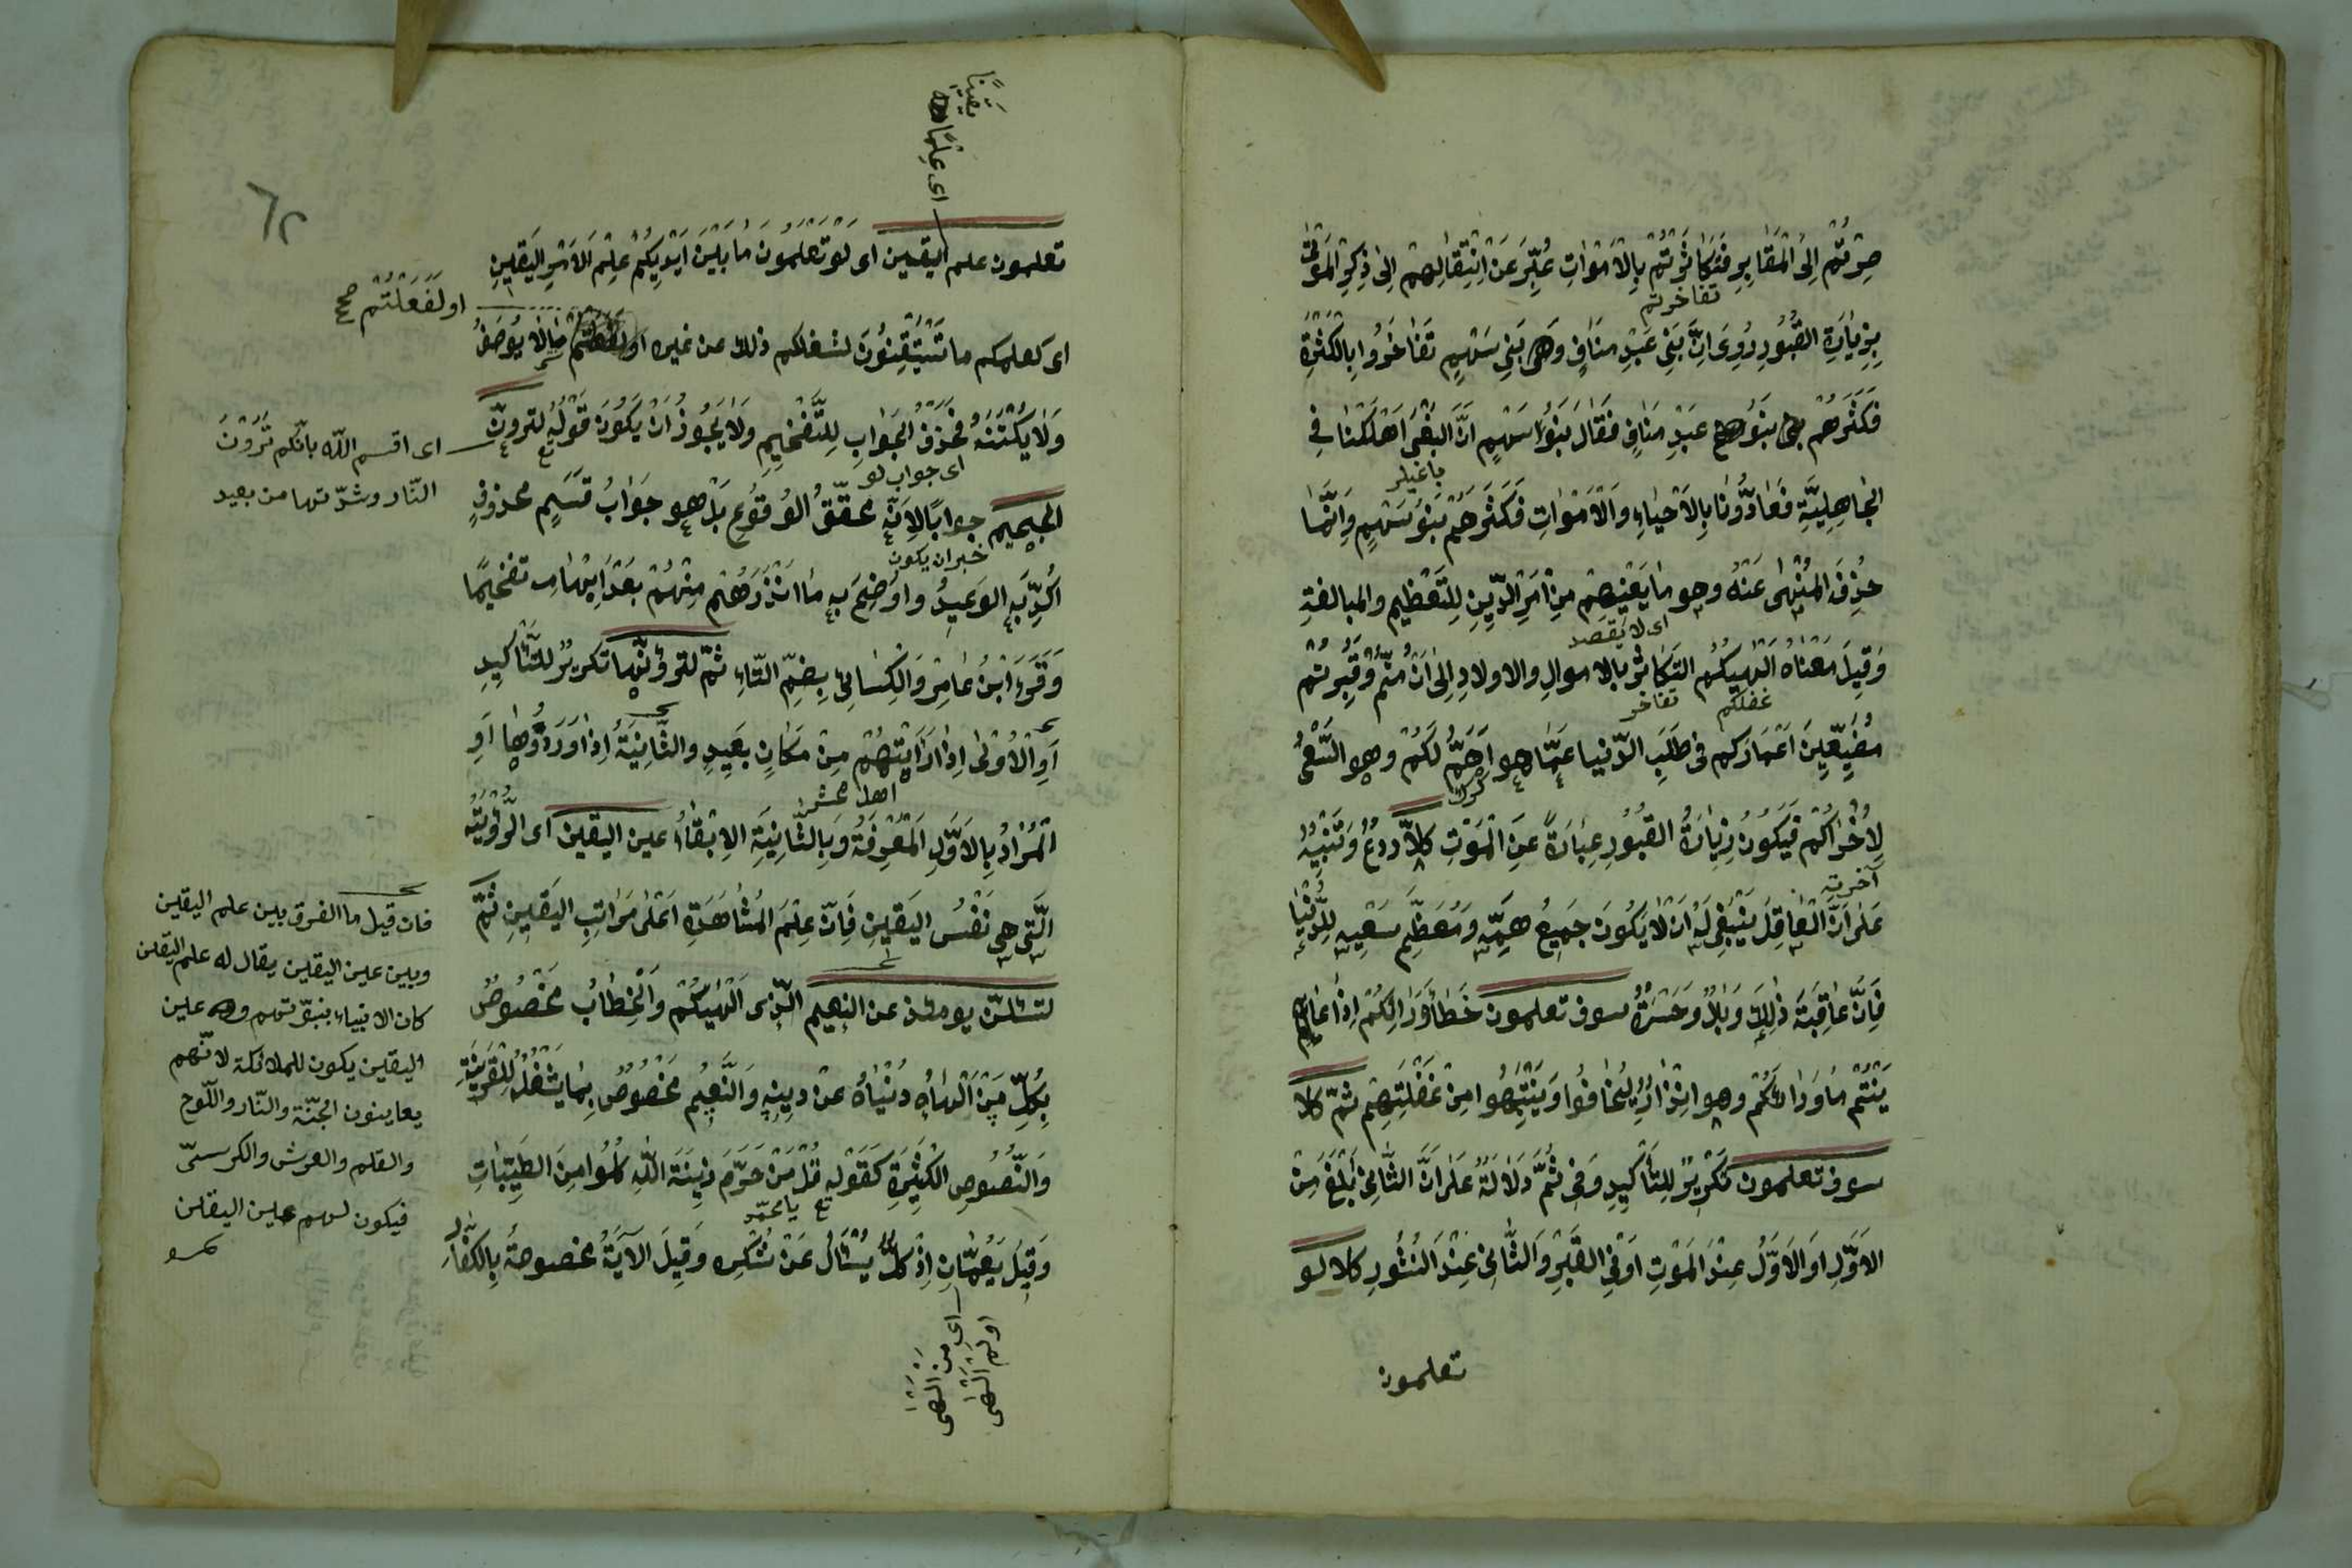 صِرْتُمْ اِلَى الْمَقَابِرِ فَتَكَاثَرْتُمْ بِالْاَمْوَاتِ عُبِّرَ عَنْ اِنْتِقَالِهِمْ اِلٰى ذِكْرِ الْمَوْتٰى
تفاخرتم
بِزِيَارَةِ القُبُورِ رُوِىَ اَنَّ بَنِى عَبْدِ مَنَافٍ وَ بَنِى سَهْمٍ تَفَاخَرُوا بِالْكَثْرَةِ
فَكَثَرَهُمْ بَنُو عَبْدِ مَنَافٍ فَقَالَ بَنُو سَهْمٍ اِنَّ البَغْىَ اَهْلَكَنَا فِى
الْجَاهِلِيَّةِ فَعَادُّونَا بِالْاَحْيَاءِ وَالْاَمْوَاتِ فَكَثَرَهُمْ بَنُو سَهْمٍ وَاِنَّمَا
حُذِفَ الْمُنْهٰى عَنْهُ وهو مَا يَعْنِيهِمْ مِنْ اَمْرِ الدِّينِ لِلتَّعْظِيمِ والمبالغة
اى لا يقصد
وَقِيلَ مَعْنَاهُ اَلْهٰيكُمُ التَّكَاثُرُ بالاموالِ والاولادِ اِلٰى اَنْ مُتُّمْ وَقُبِرْتُمْ
غفلكم تفاخر
مُضَيِّعِينَ اَعْمَارَكم فى طَلَبِ الدّنيا عَمَّا هو اَهَمُّ لَكُمْ وهو السَّعْىُ
لِاُخْرَاكُمْ فَيَكُونُ زِيَارَةُ القُبُورِ عِبَارَةً عَنِ الْمَوْتِ كَلَّا رَدْعٌ وَتَنْبِيهٌ
آخرته
عَلٰى اَنَّ الْعَاقِلَ يَنْبَغِى لَهُ اَنْ لَا يَكُونَ جَمِيعُ هِمَّتِهِ وَمُعَظَّمُ سَعْيِهِ لِلدُّنْيَا
فَاِنَّ عَاقِبَةَ ذٰلِكَ وَبَالٌ وَحَسْرَةٌ سوف تعلمون خَطَأَ رَأْيِكُمْ اِذَا عَا
يَنْتُمْ مَا وَرَاءَكُمْ وهو اِنْذَارٌ لِيَخَافُوا وَيَنْتَبِهُوا مِنْ غَفْلَتِهِمْ ثمّ كلّا
سوف تعلمون تَكْرِيرٌ لِلتَّأْكِيدِ وَفِى ثُمَّ دَلَالَةٌ عَلٰى اَنَّ الثَّانِىَ اَبْلَغُ مِنَ
الاَوَّلِ اَوِ الْاَوَّلُ عِنْدَ الْمَوْتِ اَوْ فِى القَبْرِ وَالثَّانِى عِنْدَ النُشُورِ كلا لو
تعلمون
٦٢
اى علمًا
يقينًا
تعلمون علم اليقين اى لَوْ تَعْلَمُونَ مَا بَيْنَ اَيْدِيكُمْ عِلْمَ الْاَمْرِ اليَقِينِ
او لَفَعَلْتُمْ صح
اى كعلمكم ما تَسْتَيْقِنُونَ لشغلكم ذلك عن غيره او مَا لَا يُوصَفُ
وَلَا يُكْتَنَهُ فَحُذِفَ الْجَوَابُ لِلتَّفْخِيمِ وَلَا يَجُوزُ اَنْ يَكُونَ قَوْلُهُ لترونّ
اى اقسم اللّٰه بانّكم تَرَوُنَّ
النّار وشدّتها من بعيد
اى جواب لو
الجحيم جوابًا لِاَنَّهُ مُحَقَّقُ الوُقُوعِ بَلْ هو جَوَابُ قَسَمٍ محذوفٍ
خبر ان يكون
اُكِّدَ بِهِ الوَعِيدُ واُوضِحَ بِهِ مَا اَنْذَرَهُمْ مِنْهُ بَعْدَ اِبْهَامِهِ تفخيمًا
وَقَرَءَ ابْنُ عَامِرٍ وَالْكِسَائِىُّ بِضَمِّ التَّاءِ ثمّ لترونّها تكريرٌ للتَّأْكِيدِ
اَوِ الْاُولٰى اِذَا رَاَيْتَهُمْ مِنْ مَكَانٍ بَعِيدٍ والثَّانِيَةُ اِذَا وَرَدُوهَا اَوِ
اهل محشر
الْمُرَادُ بِالْاَوَّلِ الْمَعْرِفَةُ وَبِالثَّانِيَةِ الْاِبْقَاءُ عين اليقين اى الرُّؤْيَةَ
الَّتِى هِىَ نَفْسُ اليَقِينِ فَاِنَّ عِلْمَ الْمُشَاهَدَةِ اَعْلٰى مَرَاتِبِ اليَقِينِ ثُمَّ
لتسئلنّ يومئذ عن النعيم الّذى اَلْهٰيكُمْ وَالْخِطَابُ مَخْصُوصٌ
بِكُلِّ مَنْ اَلْهَاهُ دُنْيَاهُ عَنْ دِينِهِ وَالنَّعِيمُ مَخْصُوصٌ بِمَا يَشْغَلُ لِلْقَرِينَةِ
وَالنُّصُوصِ الْكَثِيرَةِ كَقَوْلِهِ قُلْ مَنْ حَرَّمَ زِينَةَ اللّٰهِ كُلُوا مِنَ الطَّيِّبَاتِ
تع يا محمّد
وَقِيلَ يَعُمَّانِ اِذْ كُلٌّ يُسْئَلُ عَنْ شُكْرِهِ وَقِيلَ الْآيَةُ مخصوصةٌ بِالكفَّارِ
اى من اَلْهٰى
او لم اَلْهٰى
فان قيل ما الفرق بين علم اليقين
وبين عين اليقين يقال له علم اليقين
كان الانبياء بنبوّتهم وهو عين
اليقين يكون للملائكة لانّهم
يعاينون الجنّة والنّار واللّوح
والقلم والعرش والكرسىّ
فيكون لهم عين اليقين